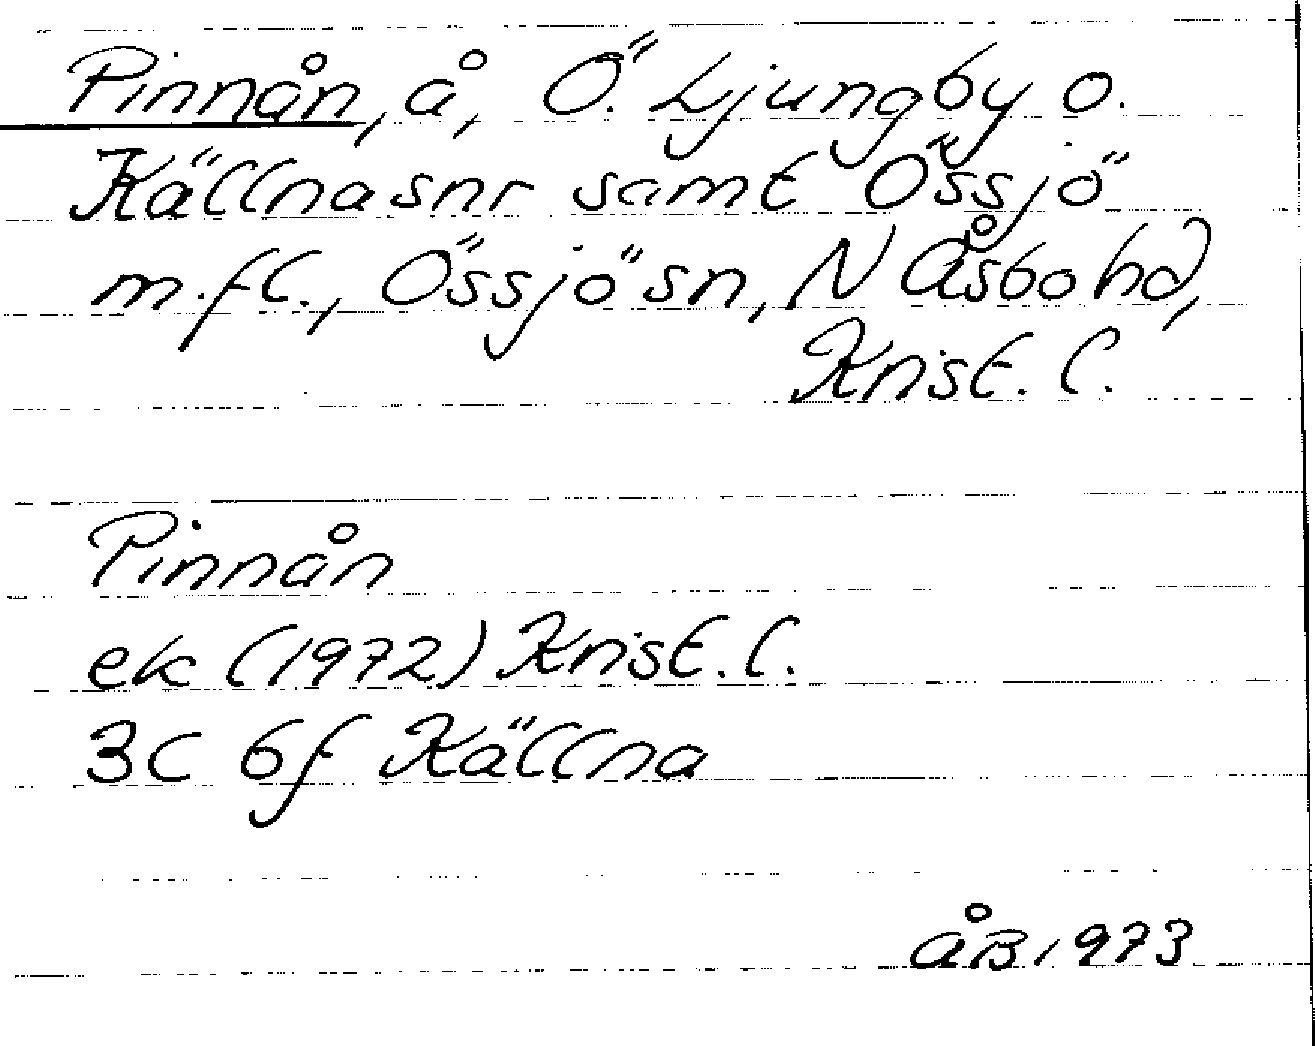 Pinnån, å, Ö. Ljungby o.
Källna snr samt Össjö
m.fl., Össjö sn, N Åsbo hd,
Krist. l.
Pinnån
ek (1972) Krist. l.
3C 6f Källna
ÅB 1973